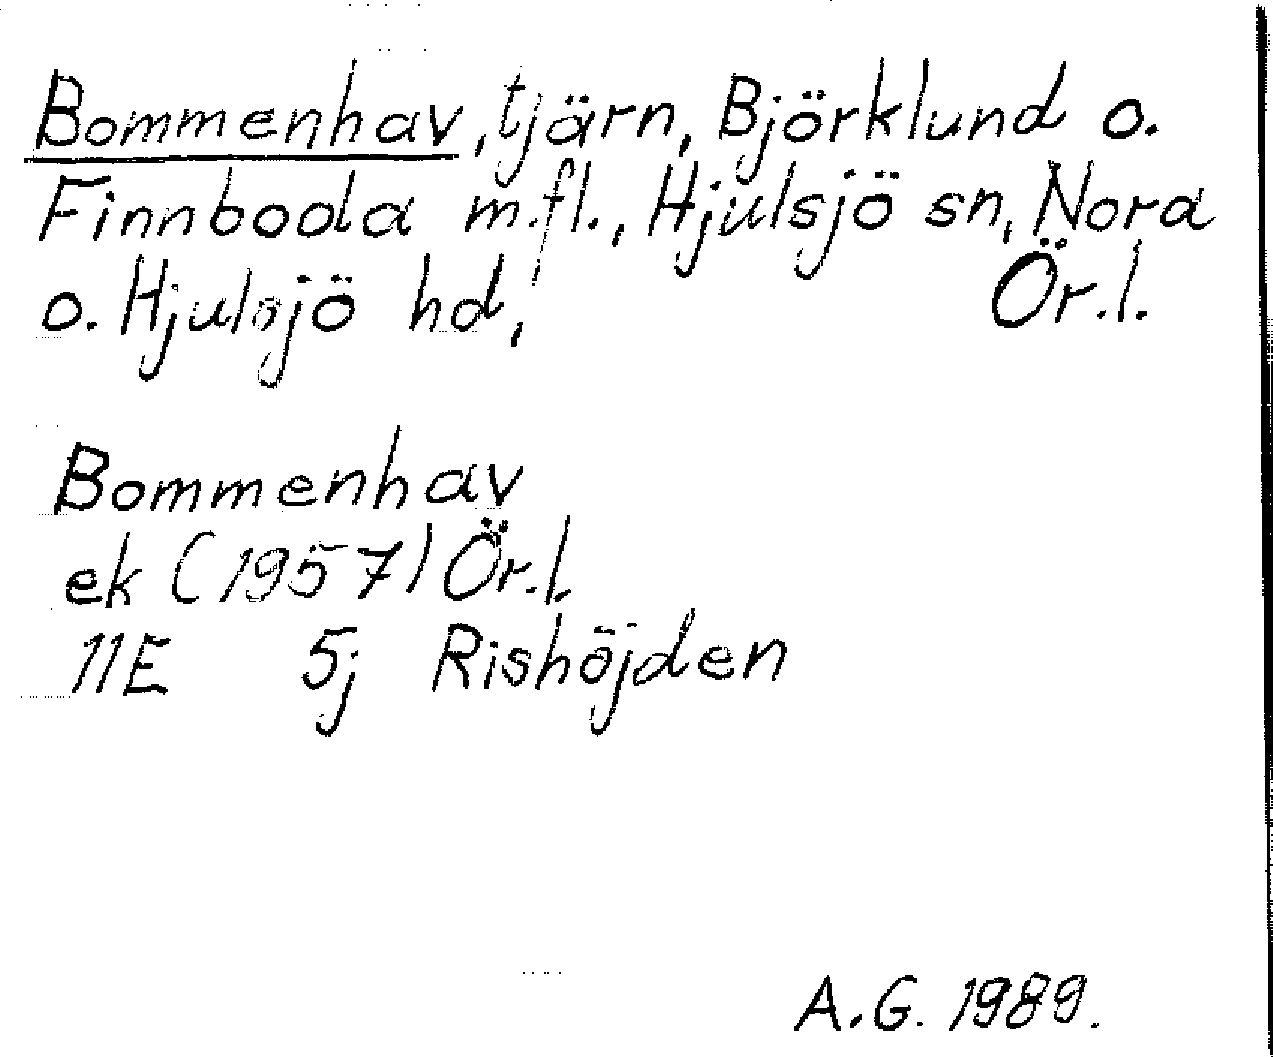 Bommenhav, tjärn, Björklund o.
Finnboda m.fl., Hjulsjö sn, Nora
o. Hjulsjö hd, Ör.l.
Bommenhav
ek (1957) Ör.l.
11E 5j Rishöjden
A.G. 1989.